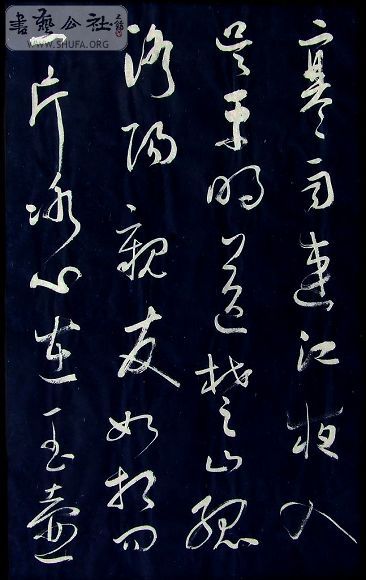 寒雨連江夜入
吳平明送楚山孤
洛陽親友如相問
一片冰心在玉壺
書藝公社
WWW.SHUFA.ORG